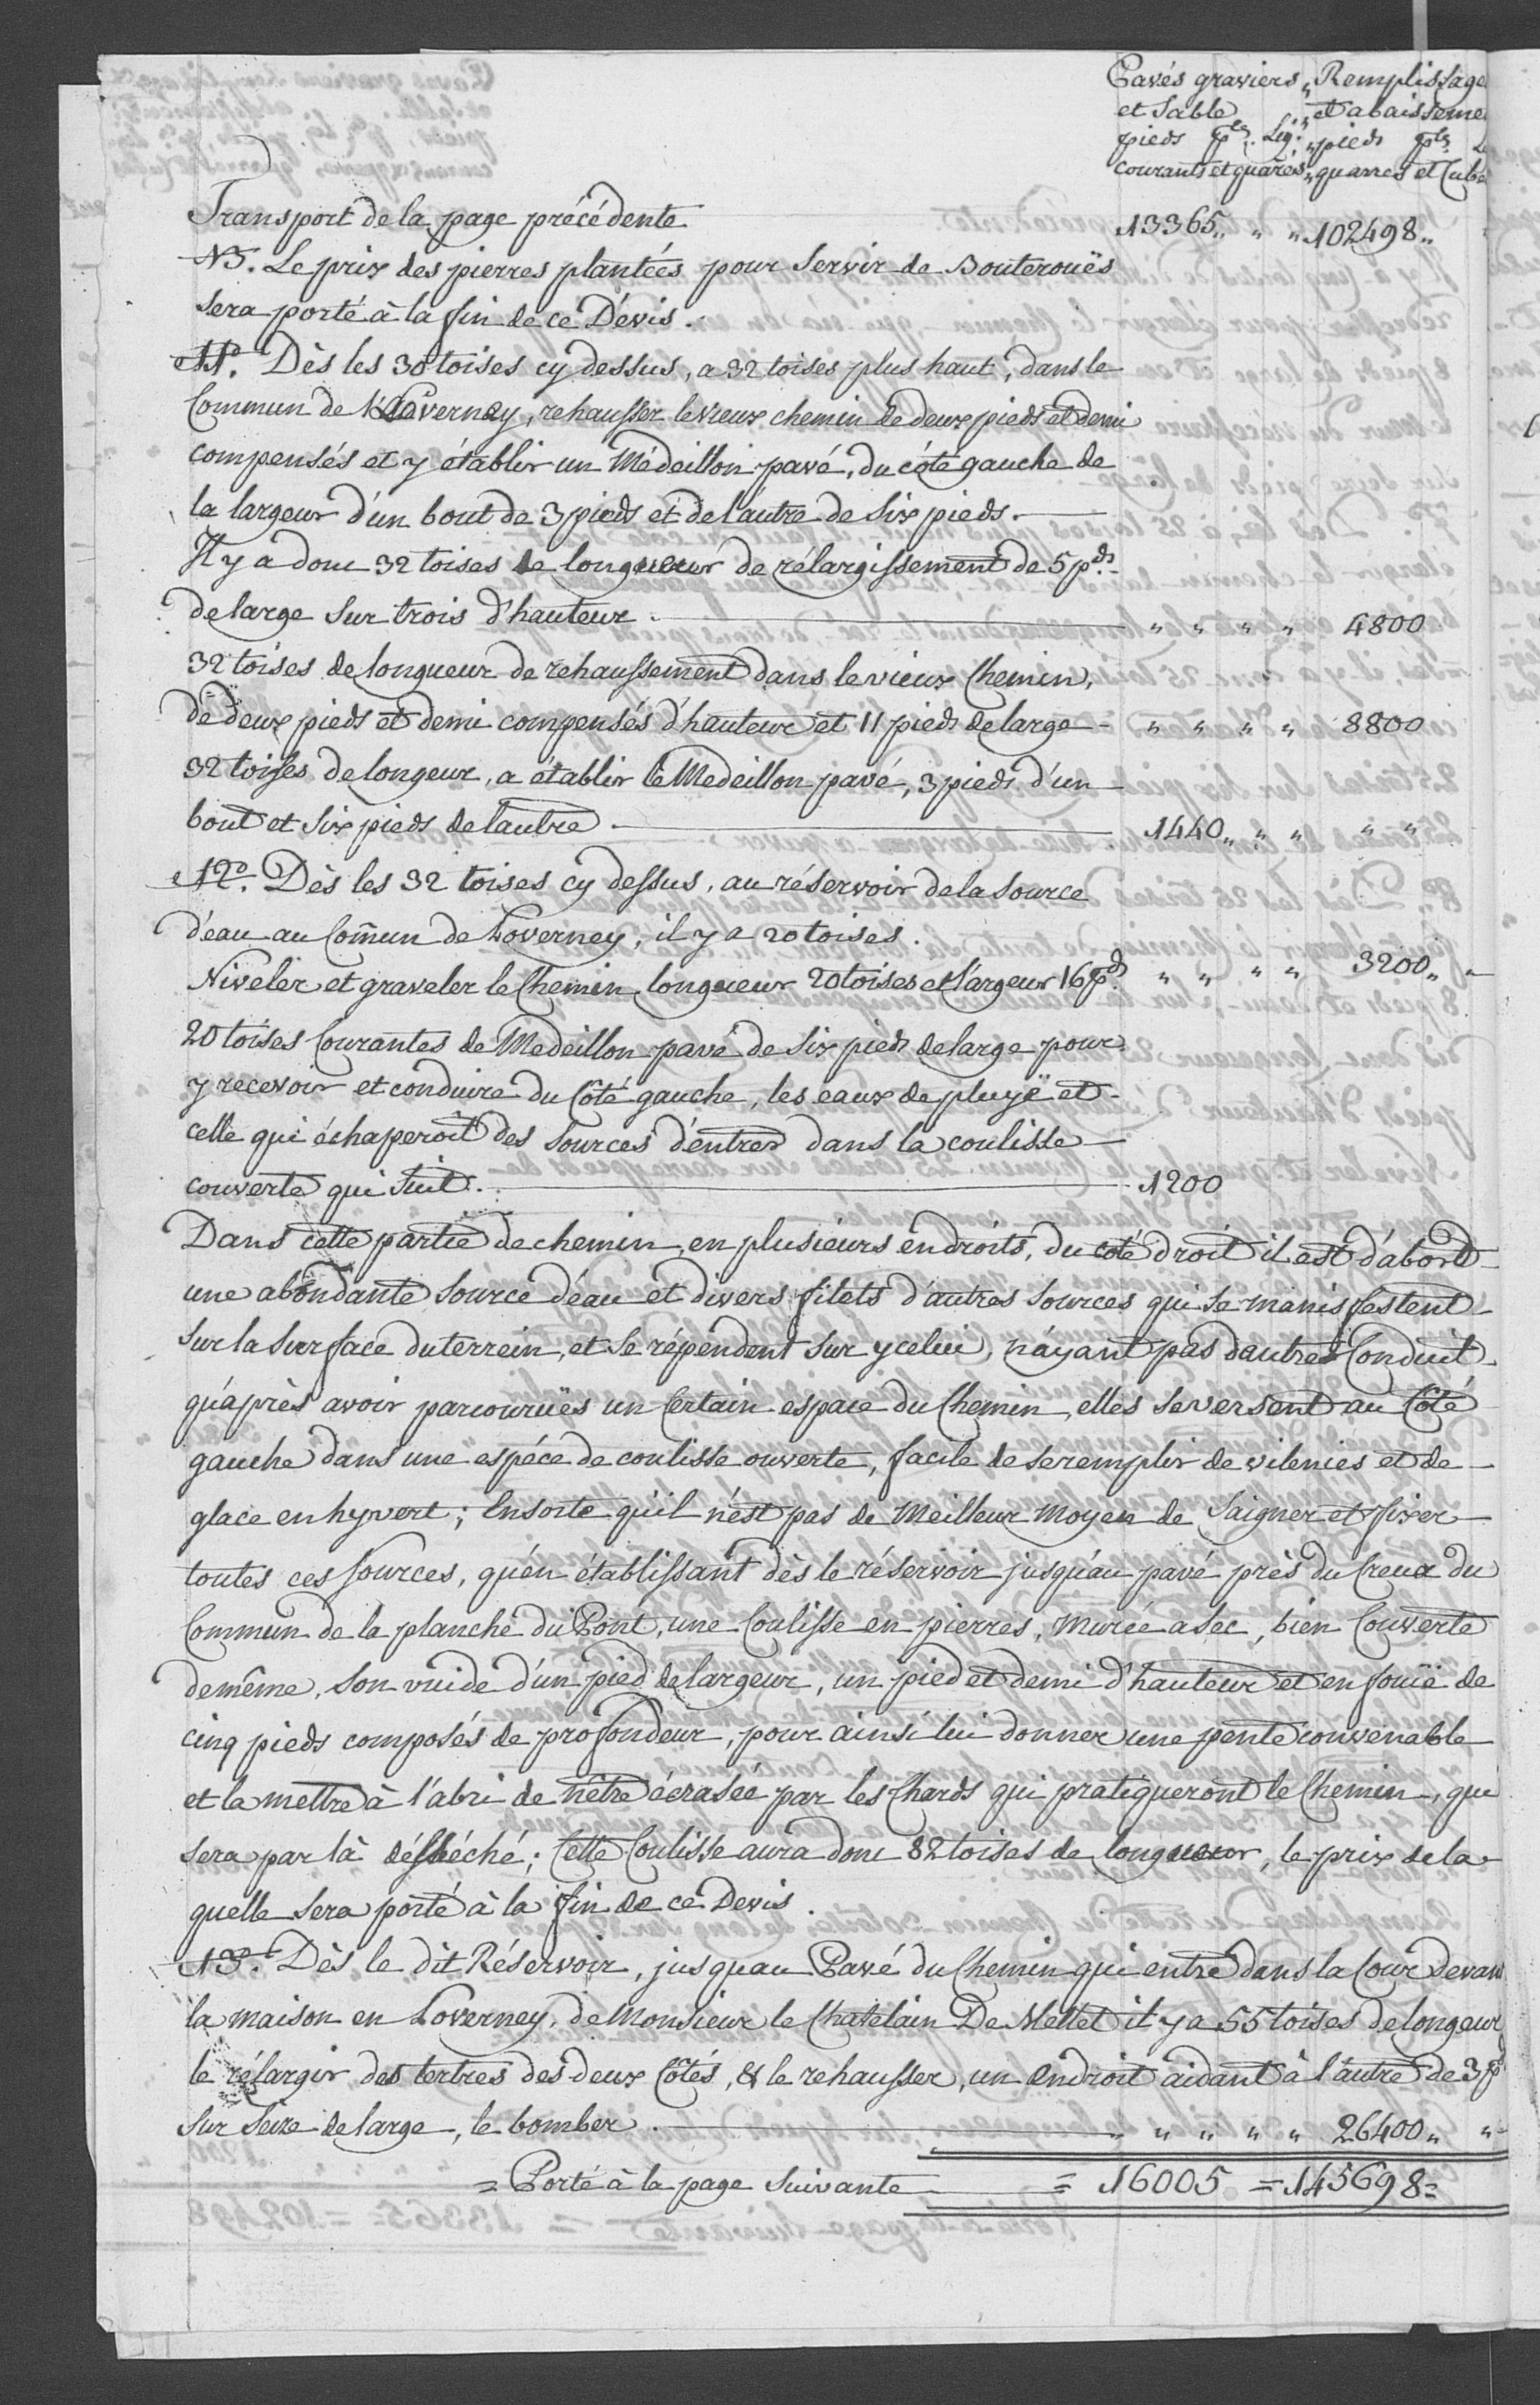 Pavés graviers „ Remplissage
et Sable „ et abaisseme
pieds pces. Lig. „ pieds pces L
courants et quarrés „ quarrés et Cube
Transport de la page précédente 13365 „ „ „ 102498 „
NB. Le prix des pierres plantées pour Servir de Bouterouës
sera porté à la fin de ce Dévis.
11º. Dès les 30 toises cy dessus, a 32 toises plus haut, dans le
Commun de Loverney, rehausser le vieux chemin de deux pieds et demi
compensés et y établir un Médeillon pavé, du côté gauche de
la largeur d'un bout de 3 pieds et de l'autre de Six pieds.
Il y a donc 32 toises de longueur de rélargissement de 5 pds
de large Sur trois d'hauteur. „ „ „ „ 4800
32 toises de longueur de rehaussement dans le vieux Chemin,
de deux pieds et demi compensés d'hauteur et 11 pieds de large „ „ „ „ 8800
32 toises de longeur, a établir le Medeillon pavé, 3 pieds d'un
bout et Six pieds de lautre. 1440 „ „ „ „ „
12º. Dès les 32 toises cy dessus, au réservoir de la Source
d'eau au Comun de Loverney, il y a 20 toises.
Niveler et graveler le Chemin longueur 20 toises et Largeur 16 pds „ „ „ „ 3200 „ „
20 toises Courantes de Medeillon pavé de Six pieds de large pour
y recevoir et conduire du Côté gauche, les eaux de pluyë et
celle qui échaperoit des Sources d'entrer dans la coulisse
couverte qui Suit. 1200
Dans cette partie de chemin, en plusieurs endroits, du coté droit il est d'abord
une abondante Source d'eau et divers filets d'autres Sources qui Se manisfestent
Sur la Surface du terrein, et Se répendent Sur ycelui, n'ayant pas d'autres Conduit
qu'après avoir parcouruës un Certain espace du Chemin, elles Se versent au Côté
gauche dans une espéce de coulisse ouverte, facile de Se remplir de vilenies et de
glace en hyvert; Ensorte qu'il n'est pas de Meilleur Moyen de Saigner et fixer
toutes ces Sources, qu'en établissant dès le réservoir jusqu'au pavé près du Creux du
Commun de la planche du Pont, une Coulisse en pierres, Murée a Sec, bien Couverte
de même, Son vuide d'un pied de largeur, un pied et demi d'hauteur et enfouïe de
cinq pieds composés de profondeur, pour ainsi lui donner une pente convenable
et la mettre à l'abri de n'être écrasée par les Chards qui pratiqueront le Chemin, que
Sera par là désséché; Cette Coulisse aura donc 82 toises de longueur, le prix de la
quelle Sera porté à la fin de ce Devis.
13º. Dès le dit Réservoir, jusquau Pavé du Chemin qui entre dans la Cour Devant
la maison en Loverney, de Monsieur le Chatelain De Mellet il y a 55 toises de longeur
le rélargir des tertres des deux Côtés, & le rehausser, un Endroit aidant à l'autre de 3 p
Sur Seize de large, le bomber. „ „ „ „ „ 26400 „ „
= Porté à la page Suivante = 16005 = 145698 =